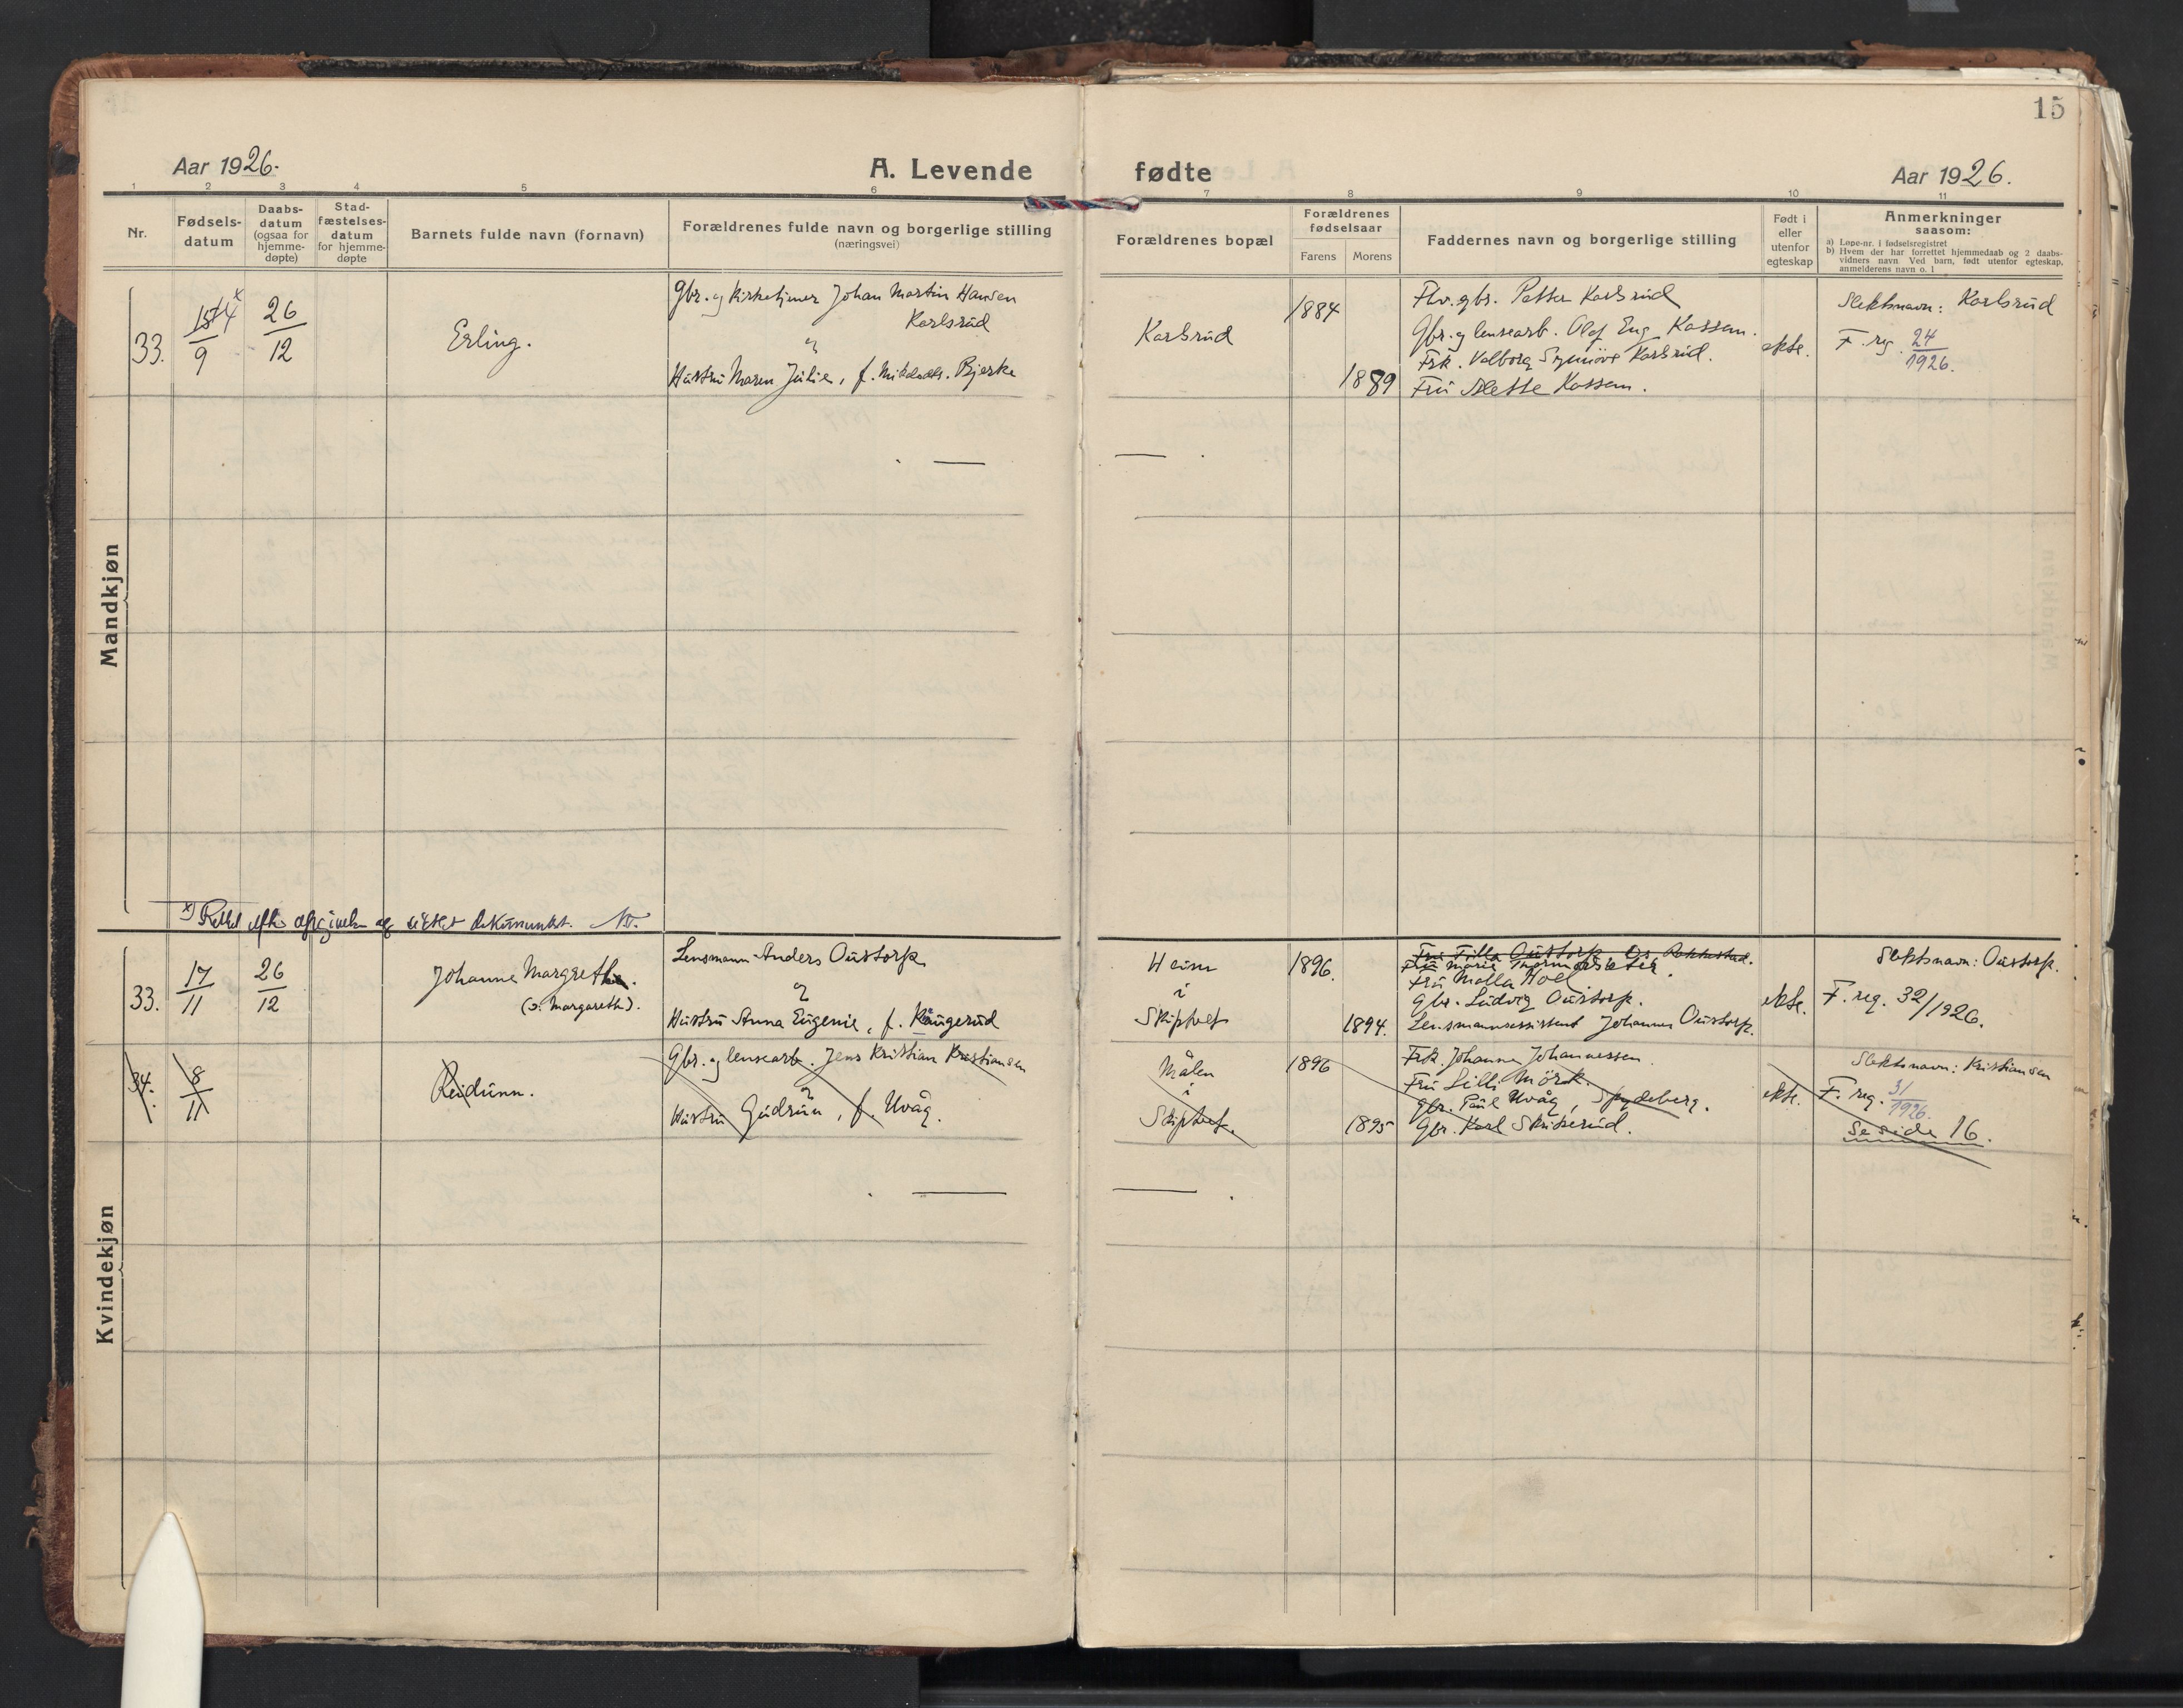 15
Aar 1926.
A. Levende fødte
Aar 1926.
1 2 3 4 5 6 7 8 9 10 11
Nr.
Fødsels-
datum
Daabs-
datum
(ogsaa for
hjemme-
døpte)
Stad-
fæstelses-
datum
for hjemme-
døpte
Barnets fulde navn (fornavn)
Forældrenes fulde navn og borgerlige stilling
(næringsvei)
Forældrenes bopæl
Forældrenes
fødselsaar
Farens Morens
Faddernes navn og borgerlige stilling
Født i
eller
utenfor
egteskap
Anmerkninger
saasom:
a) Løpe-nr. i fødselsregistret
b) Hvem der har forrettet hjemmedaab og 2 daabs-
vidners navn Ved barn, født utenfor egteskap,
anmelderens navn o. l
Mandkjøn
33.
15 14 x
9
26
12
Erling.
Gbr. og Kirketjener Johan Martin Hansen
Karlsrud
og
Hustru Maren Julie, f. Bjerke
Karlsrud
1884
1889
Fhv. gbr. Petter Karlsrud
Gbr. og lensearb. Olaf Eng Kassen.
Frk. Valborg Synnöve Karlsrud.
Fru Kassen.
ekte.
Slektsnavn: Karlsrud
F. reg. 24
1926.
x) Rettet efter av dokument.
Kvindekjøn
33.
17
11
26
12
Johanne Margrethe.
(o: Margareth).
Lensmann Anders Oustorp
og
Hustru Anna Eugenie, f. Kaugerud
Heim
i
Skiptvet
1896.
1894.
Fru Tilla Oustorp Os, Rakkestad.
Fru Marie
Fru Molla Hoel.
Gbr. Ludvig Oustorp.
Lensmannsassistent Johannes Oustorp.
ekte.
Slektsnavn: Oustorp.
F. reg. 32/1926.
34.
8
11
Reidunn.
Gbr. og lensearb. Jens Kristian Kristiansen
og
Hustru Gudrun, f. Uvåg.
Målen
i
Skiptvet.
1896
1895
Frk. Johanne Johannessen
Fru Lilli Mörk.
Gbr. Paul Uvåg, Spydeberg.
Gbr. Karl Skutserud.
ekte.
Slektsnavn: Kristiansen
F. reg. 31
1926.
Se side 16.